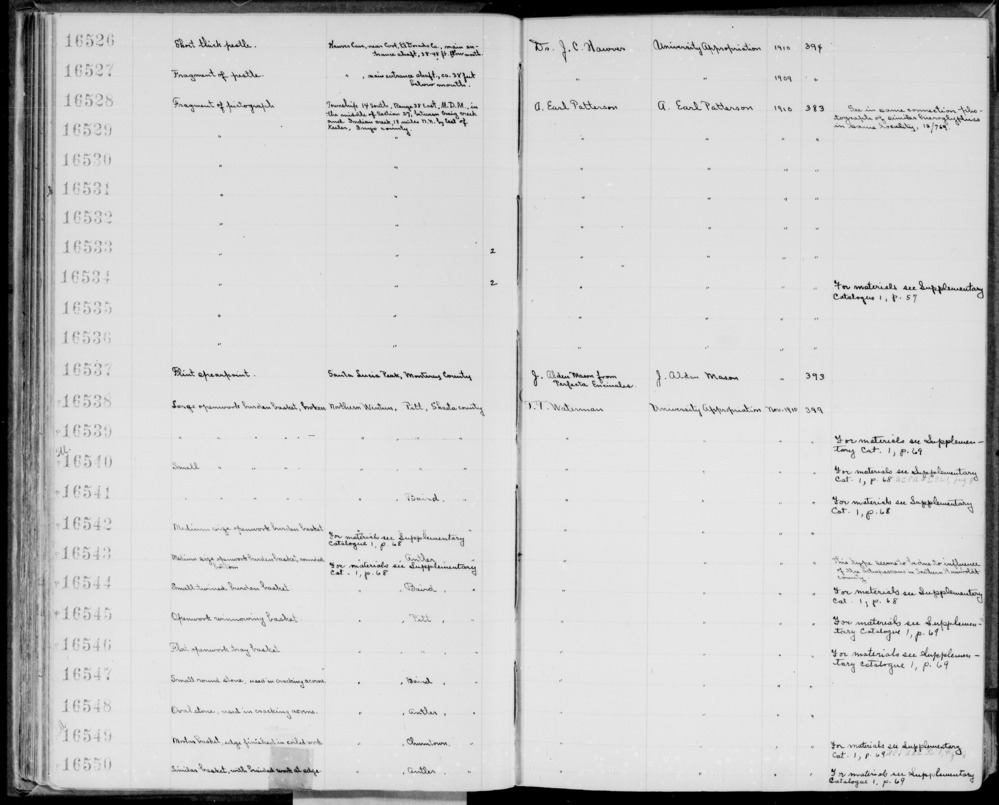 16526 Short thick pestle. Hawver Cave, near Cool, El Dorado Co., main en- Dr. J. C. Hawver University Appropriation 1910 394
trance shaft, 38-48 ft. from mouth
16527 Fragment of pestle. " , main entrance shaft, ca. 38 feet " " 1909 "
below mouth.
16528 Fragment of pictograph Township 14 South, Range 38 East, M.D.M., in A. Earl Patterson A. Earl Patterson 1910 383 See in same connection pho-
the middle of Section 27, between Craig creek tographs of similar hieroglyphics
and Indian creek, 18 miles N.N. by East of in same locality, 15/769.
Keeler, Inyo county.
16529 " " " " " "
16530 " " " " " "
16531 " " " " " "
16532 " " " " " "
16533 " " 2 " " " "
16534 " " 2 " " " " For materials see Supplementary
Catalogue 1, p. 57
16535 " " " " " "
16536 " " " " " "
16537 Flint spearpoint. Santa Lucia Peak, Monterey County J. Alden Mason from J. Alden Mason " 393
Perfecta Encinales.
16538 Large openwork burden basket, broken Northern Wintun, Pitt, Shasta county T. T. Waterman University Appropriation Nov. 1910 399
16539 " " " " " " " " " " " For materials see Supplemen-
tary Cat. 1, p. 69
16540 Small " " " " " " " " " " For materials see Supplementary
Cat. 1, p. 68
16541 " " " " " , Baird. " " " " " For materials see Supplementary
Cat. 1, p. 68
16542 Medium size openwork burden basket " " " " "
For materials see Supplementary
Catalogue 1, p. 68
16543 Medium size openwork burden basket, rounded " , Antler " " " " " This type seems to be due to influence
bottom For materials see Supplementary of the Athapascans in Southern Humboldt
Cat. 1, p. 68 county.
16544 Small twined burden basket " , Baird. " " " " " For materials see Supplementary
Cat. 1, p. 68
16545 Openwork winnowing basket " , Pitt. " " " " " For materials see Supplemen-
tary Catalogue 1, p. 69
16546 Flat openwork tray basket " " " " " " " For materials see Supplemen-
tary Catalogue 1, p. 69
16547 Small round stone, used in cracking acorns. " , Baird. " " " " "
16548 Oval stone, used in cracking acorns. " , Antler. " " " " "
16549 Mortar basket, edge finished in coiled work " , Churntown. " " " " " For materials see Supplementary
Cat. 1, p. 69
16550 Similar basket, with braided work at edge " , Antler. " " " " " For materials see Supplementary
Catalogue 1, p. 69